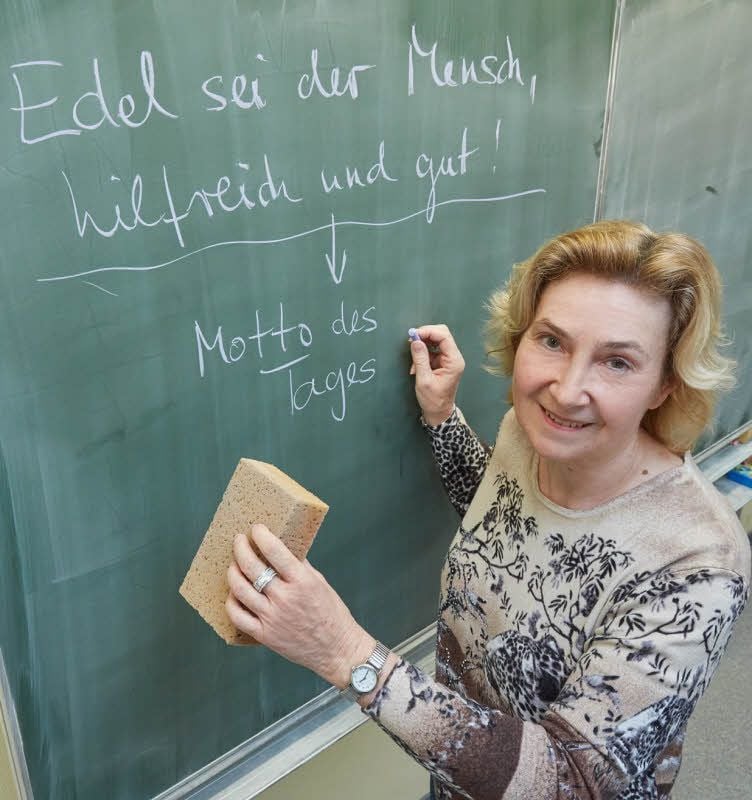 Edel sei der Mensch,
hilfreich und gut!
Motto des
Tages